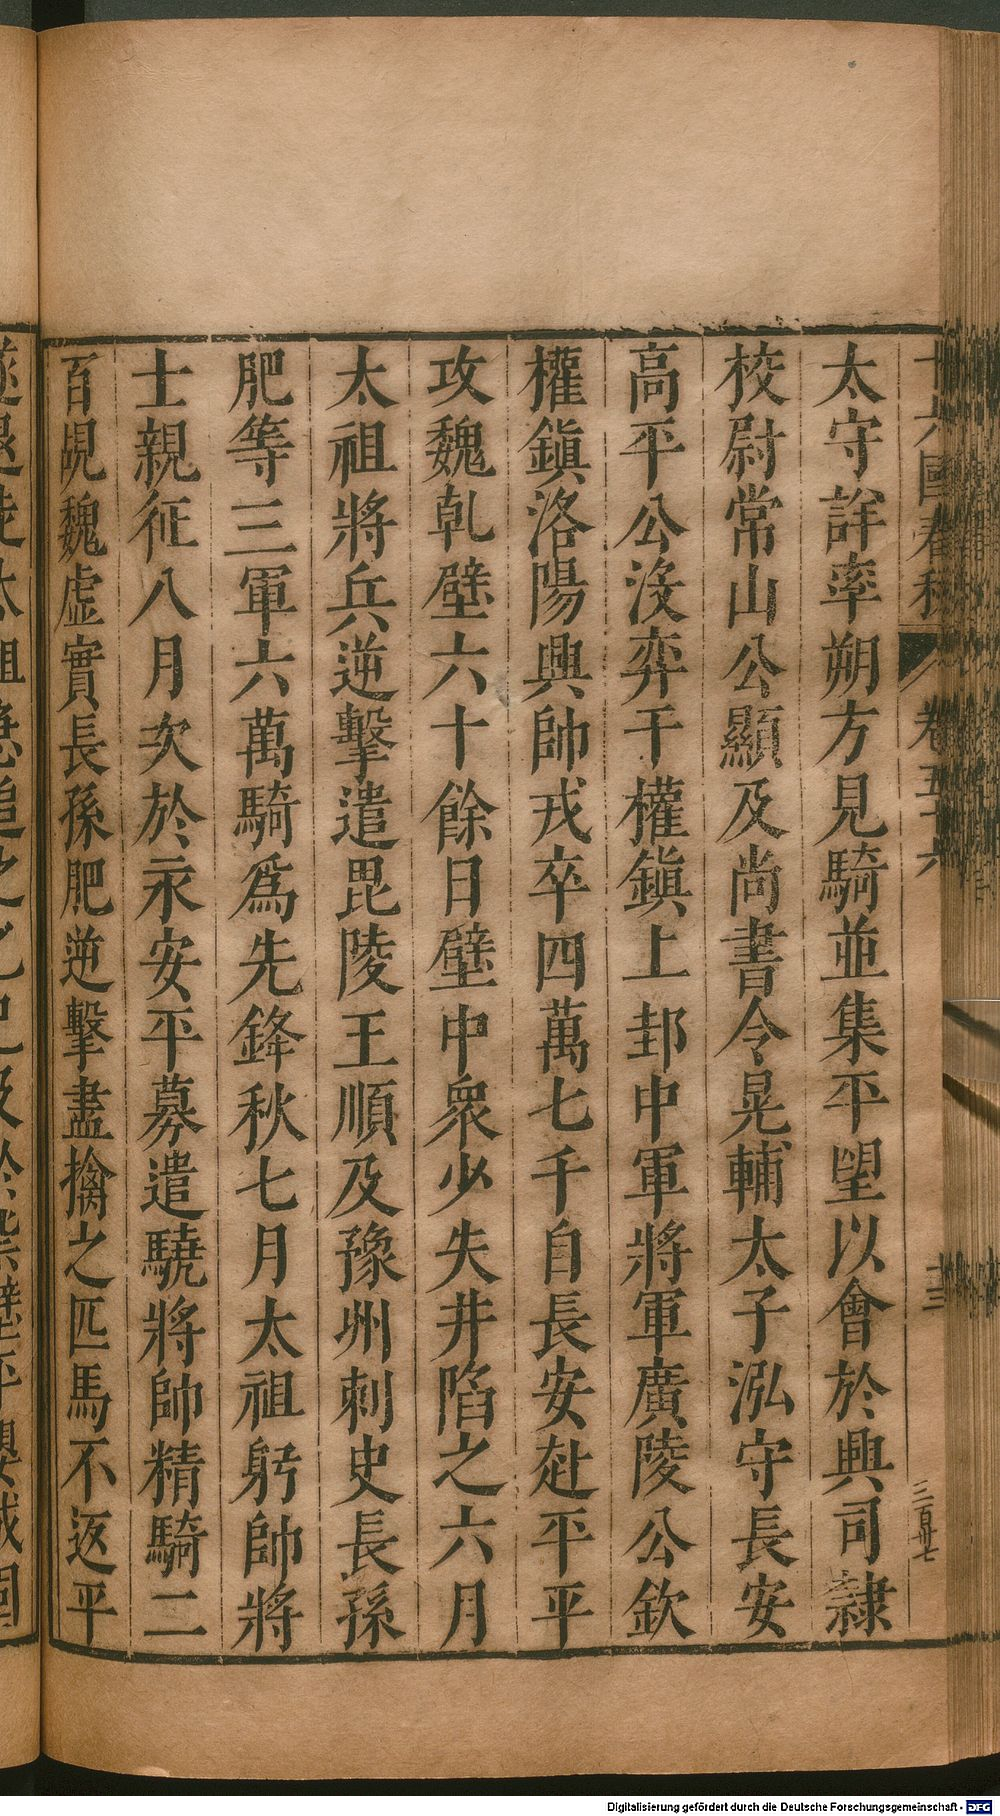 十六國春秋 卷五十六 十三 三百卅七
太守詳率朔方見騎並集平望以會於興司隸
校尉常山公顯及尚書令晃輔太子泓守長安
高平公沒弈干權鎮上邽中軍將軍廣陵公欽
權鎮洛陽興帥戎卒四萬七千自長安赴平平
攻魏乹壁六十餘日壁中衆少失井陷之六月
太祖將兵逆擊遣毘陵王順及豫州刺史長孫
肥等三軍六萬騎爲先鋒秋七月太祖躬帥將
士親征八月次於永安平募遣驍將帥精騎二
百覘魏虛實長孫肥逆擊盡擒之匹馬不返平
遂退走太祖急追之乙巳及於柴壁平嬰城固
Digitalisierung gefördert durch die Deutsche Forschungsgemeinschaft - DFG